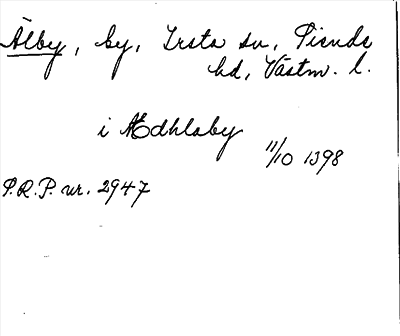 Älby, by, Irsta sn, Siende
hd, Västm. l.
i Ædhlaby
11/10 1398
P.R.P. nr. 2947